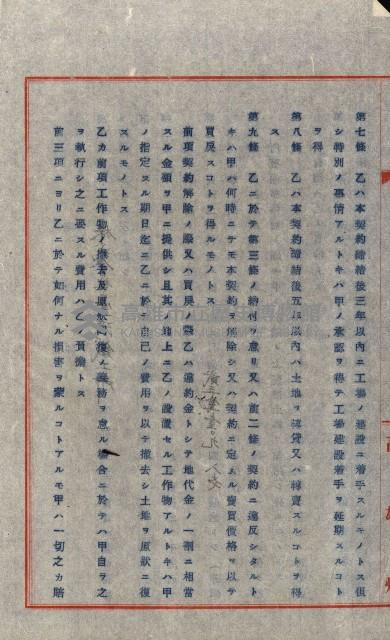 第七條 乙ハ本契約締結後三年以內ニ工場ノ建設ニ着手スルモノトス但
シ特別ノ事情アルトキハ甲ノ承認ヲ得テ工場建設着手ヲ延期スルコト
ヲ得
第八條 乙ハ本契約締結後五年以內ハ土地ヲ轉貸又ハ轉賣スルコトヲ得
ス
第九條 乙ニ於テ第三條ノ納付ヲ怠リ又ハ前二條ノ契約ニ違反シタルト
キハ甲ハ何時ニテモ本契約ヲ解除シ又ハ契約ニ定ムル賣買價格ヲ以テ
買戾スコトヲ得ルモノトス
前項契約解除ノ際又ハ買戾ノ際乙ハ違約金トシテ地代金ノ一割ニ相當
スル金額ヲ甲ニ提供シ且其ノ地上ニ乙ノ設置セル工作物アルトキハ甲
ノ指定スル期日迄ニ乙ニ於テ自己ノ費用ヲ以テ撤去シ土地ヲ原狀ニ復
スルモノトス
乙カ前項工作物ノ撤去及原狀回復ノ義務ヲ怠ル場合ニ於テハ甲自ラ之
ヲ執行シ之ニ要スル費用ハ乙ノ負擔トス
前三項ニヨリ乙ニ於テ如何ナル損害ヲ蒙ルコトアルモ甲ハ一切之カ賠
高雄州